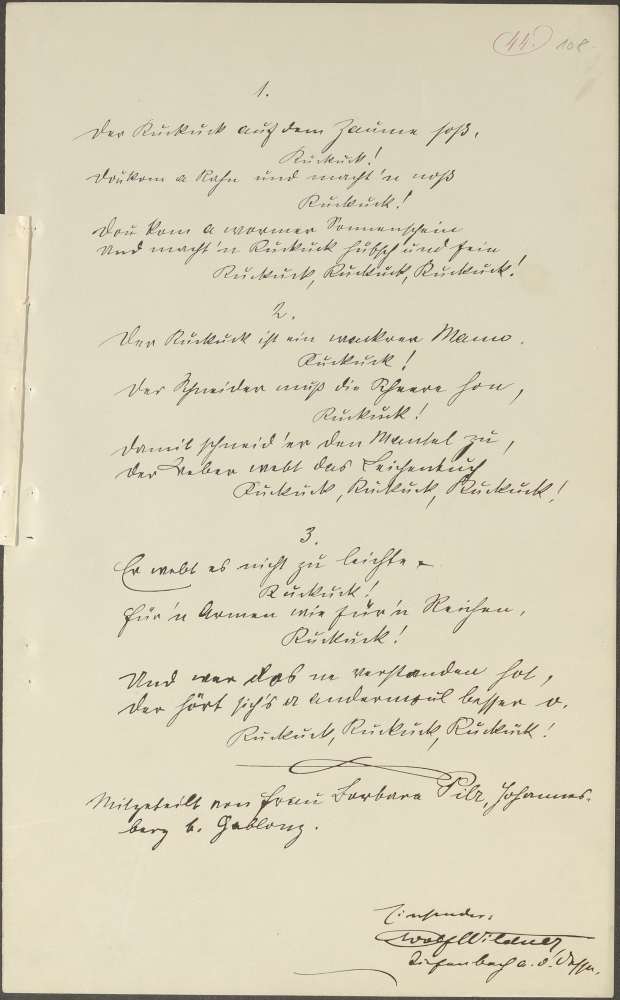 44. 108.
1.
Der Kuckuck auf dem Zaume soß,
Kuckuck!
Doukom a Rahn und macht'n noß
Kuckuck!
Dou kom a wormer Sonnenschein
Und macht'n Kuckuck hübsch und fein
Kuckuck, Kuckuck, Kuckuck!
2.
Der Kuckuck ist ein wackrer Mann.
Kuckuck!
Der Schneider muß die Scheere hon,
Kuckuck!
Damit schneid'er den Mantel zu,
Der Weber webt das Leichentuch
Kuckuck, Kuckuck, Kuckuck!
3.
Er webt es nicht zu leichte
Kuckuck!
Für'n Armen wie für'n Reichen,
Kuckuck!
Und wer das ne verstanden hot,
Der hört sich's a andermoul besser o.
Kuckuck, Kuckuck, Kuckuck!
Mitgeteilt von Frau Barbara Pilz, Johannes-
berg b. Gablonz.
Einsender:
Adolf Wildner
Tiefenbach a. d. Desse.